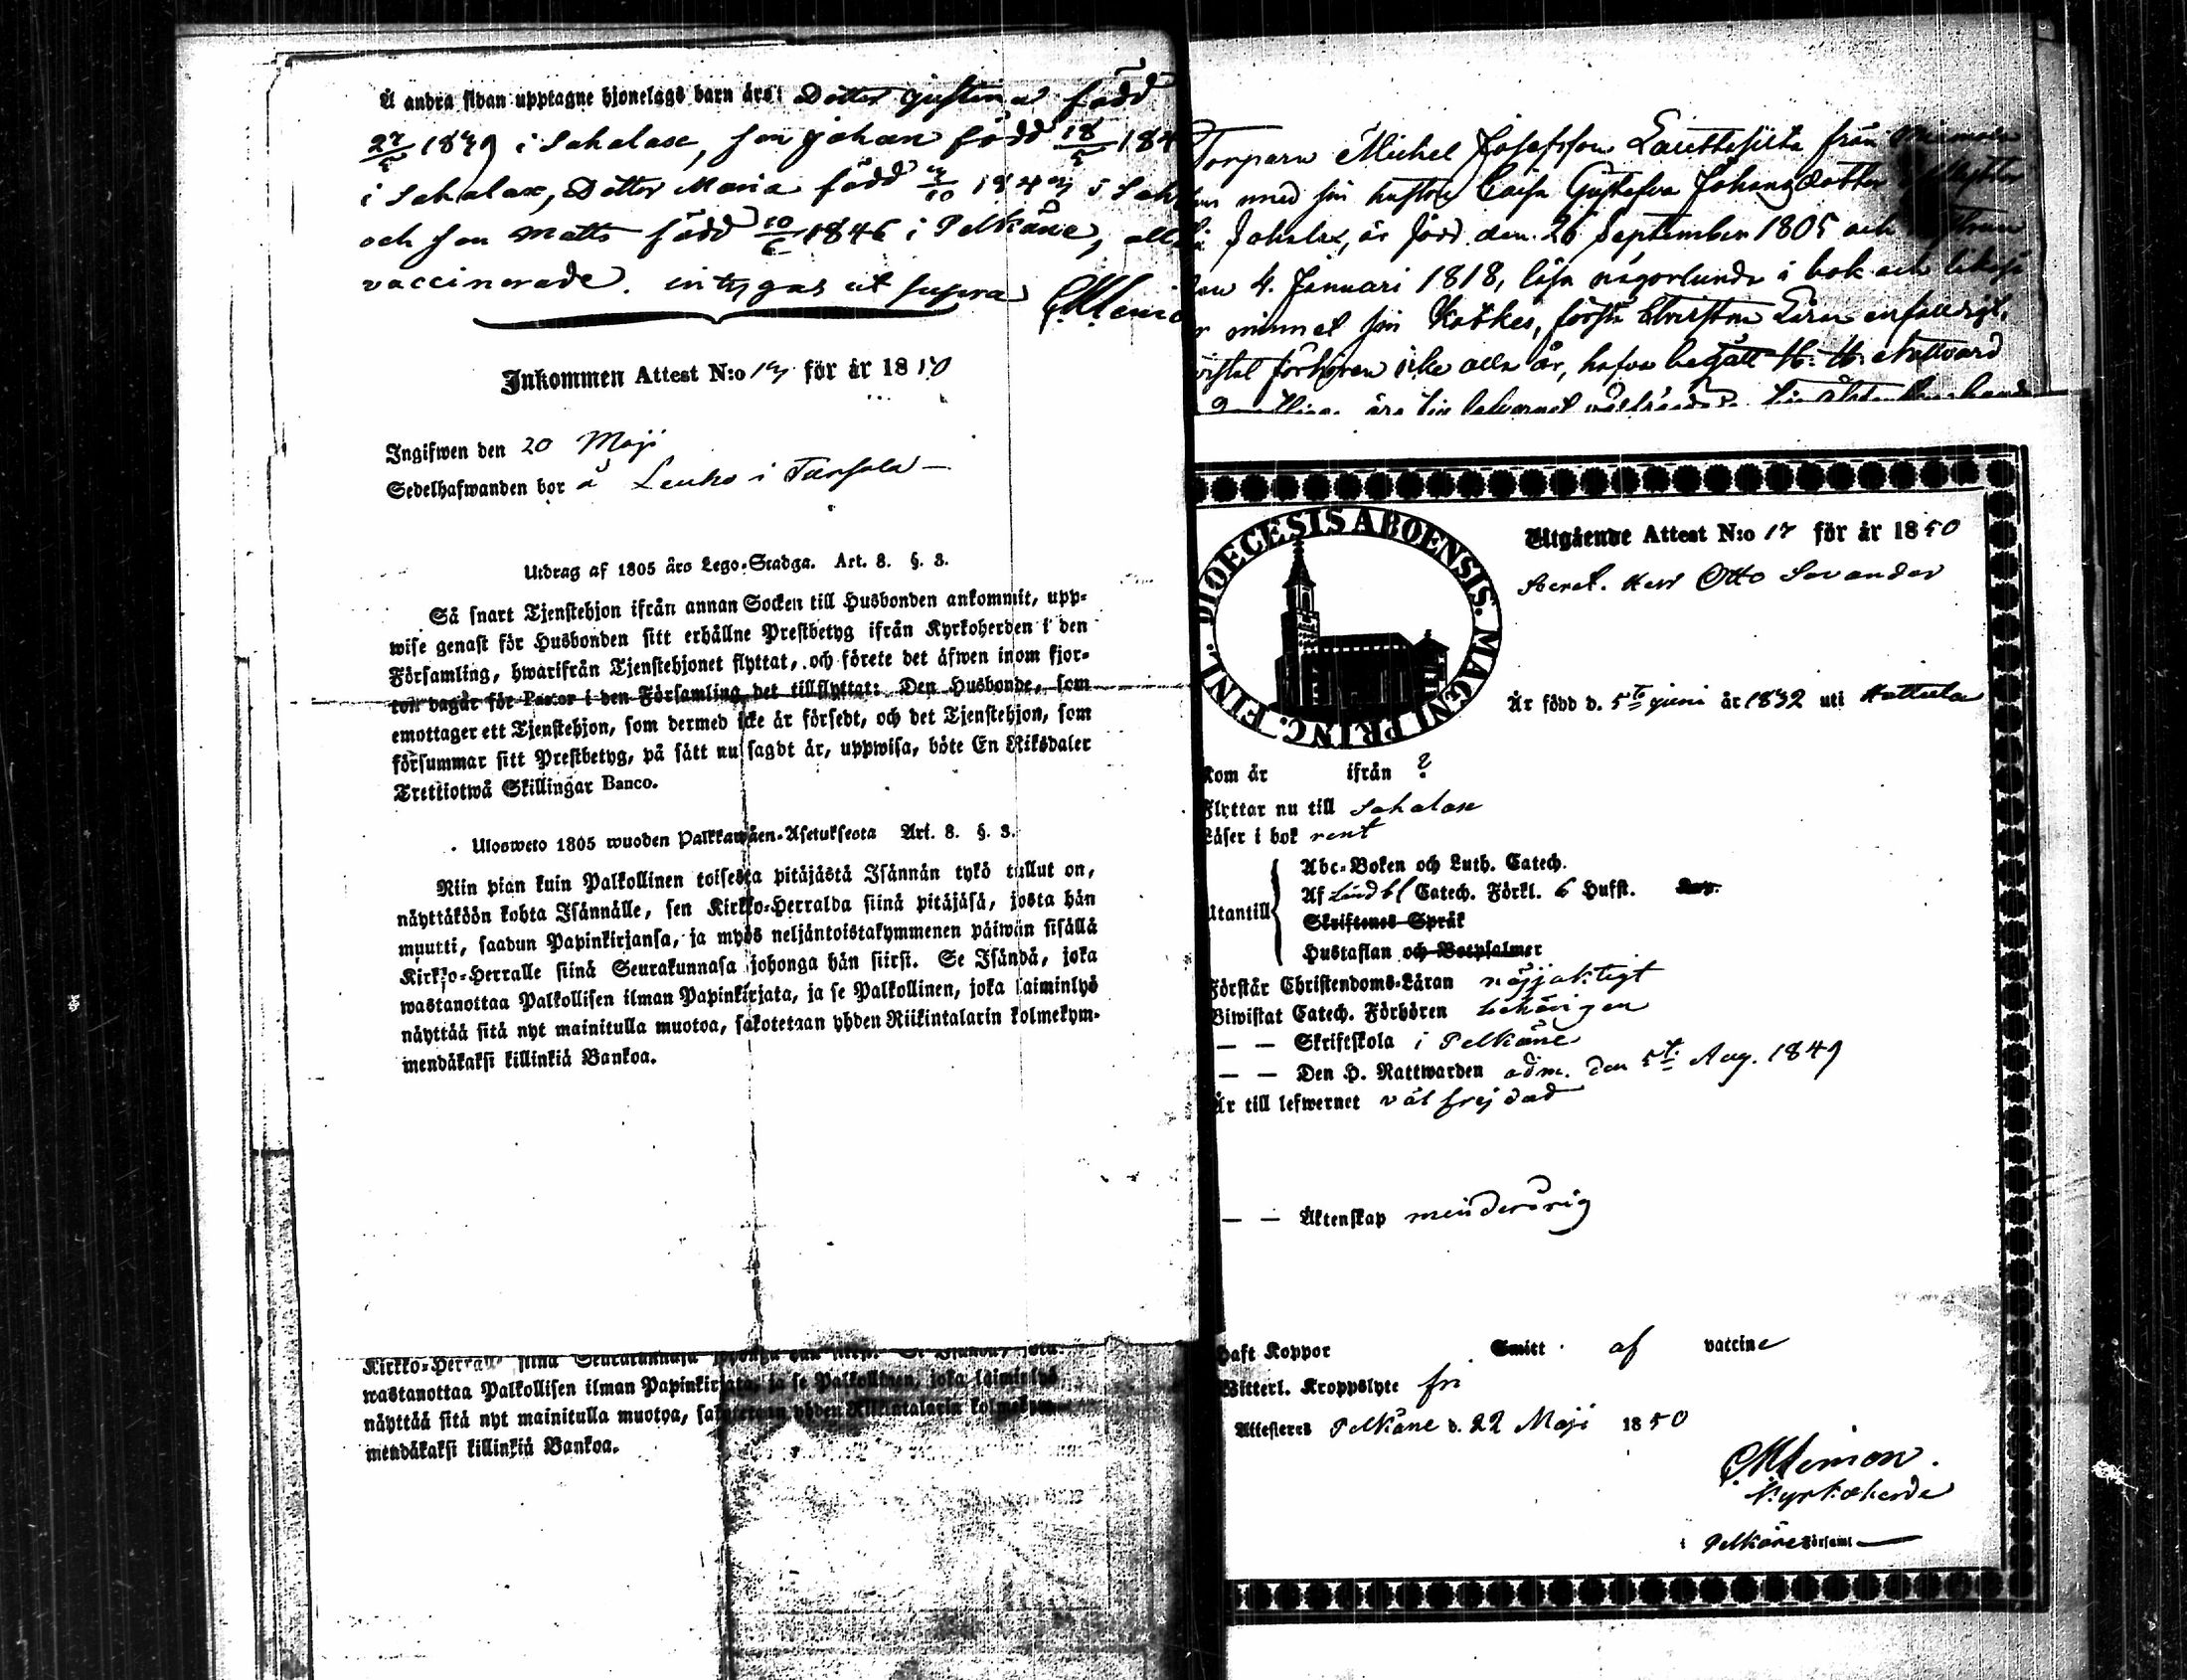 Å andra sidan upptagne hjonelags barn äro: Dotter Gustina född
27/5 1839 i Sahalax, son Johan född 18/5 184
i Sahalax, Dotter Maria född 3/10 1843 i Sah
och son Matts född 10/6 1846 i Pelkäne, alla
vaccinerade. intygas ut supra
Inkommen Attest N:o 13 för år 1850
Ingifwen den 20 Maji
Sedelhafwanden bor å Leuho i Tursola —
Utdrag af 1805 års Lego-Stadga. Art. 8. §. 3.
Så snart Tjenstehjon ifrån annan Socken till Husbonden ankommit, upp-
wise genast för Husbonden sitt erhållne Prestbetyg ifrån Kyrkoherden i den
Församling, hwarifrån Tjenstehjonet flyttat, och förete det äfwen inom fjor-
ton dagar för Pastor i den Församling det tillflyttat: Den Husbonde, som
emottager ett Tjenstehjon, som dermed icke är försedt, och det Tjenstehjon, som
försummar sitt Prestbetyg, på sätt nu sagdt är, uppwisa, böte En Riksdaler
Trettiotwå Skillingar Banco.
Ulosweto 1805 wuoden Palkkawäen-Asetuksesta Art. 8. §. 3.
Niin pian kuin Palkollinen toisesta pitäjästä Isännän tykö tullut on,
näyttäköön kohta Isännälle, sen Kirkko-Herralda siinä pitäjäsä, josta hän
muutti, saadun Papinkirjansa, ja myös neljäntoistakymmenen päiwän sisällä
Kirkko-Herralle siinä Seurakunnasa johonga hän siirsi. Se Isändä, joka
wastanottaa Palkollisen ilman Papinkirjata, ja se Palkollinen, joka laiminlyö
näyttää sitä nyt mainitulla muotoa, sakotetaan yhden Riikintalarin kolmekym-
mendäkaksi killinkiä Bankoa.
Kirkko-Herralle siinä Seurakunnasa
wastanottaa Palkollisen ilman Papinkirjata, ja se Palkollinen, joka laiminlyö
näyttää sitä nyt mainitulla muotoa, sakotetaan yhden Riikintalarin kolmekym-
mendäkaksi killinkiä Bankoa.
Torparn Michel Josefsson från
med sin hustru Caisa Gustafva Johansdotter
Sahalax, är född den 26 September 1805 och
4. Januari 1818, läsa någorlunda i bok och
minnet sin första Christna Läran enfaldigt,
förhören icke alla år, hafva begått H. H. Nattvard
DIOECESIS ABOENSIS. MAGNI PRINC. FINL.
Utgående Attest N:o 17 för år 1850
Secret. Herr Otto Savander
Är född d. 5te Juni år 1832 uti Hattula
Kom år ifrån ?
Flyttar nu till Sahalax
Läser i bok rent
Utantill
Abc-Boken och Luth. Catech.
Af Lindbl Catech. Förkl. 6 Hufst.
Skriftenes Språk
Hustaflan och Botpsalmer
Förstår Christendoms-Läran nöjjaktigt
Biwistat Catech. Förhören behörigen
— — Skriftskola i Pelkäne
— — Den H. Nattwarden adm. den 5te Aug. 1849
Är till lefwernet väl frejdad
— — Äktenskap minderårig
Haft Koppor Smitt af vaccine
Witterl. Kroppslyte fri
Attesteres Pelkäne d. 22 Maji 1850
Kyrkoherde
i Pelkäne Församl